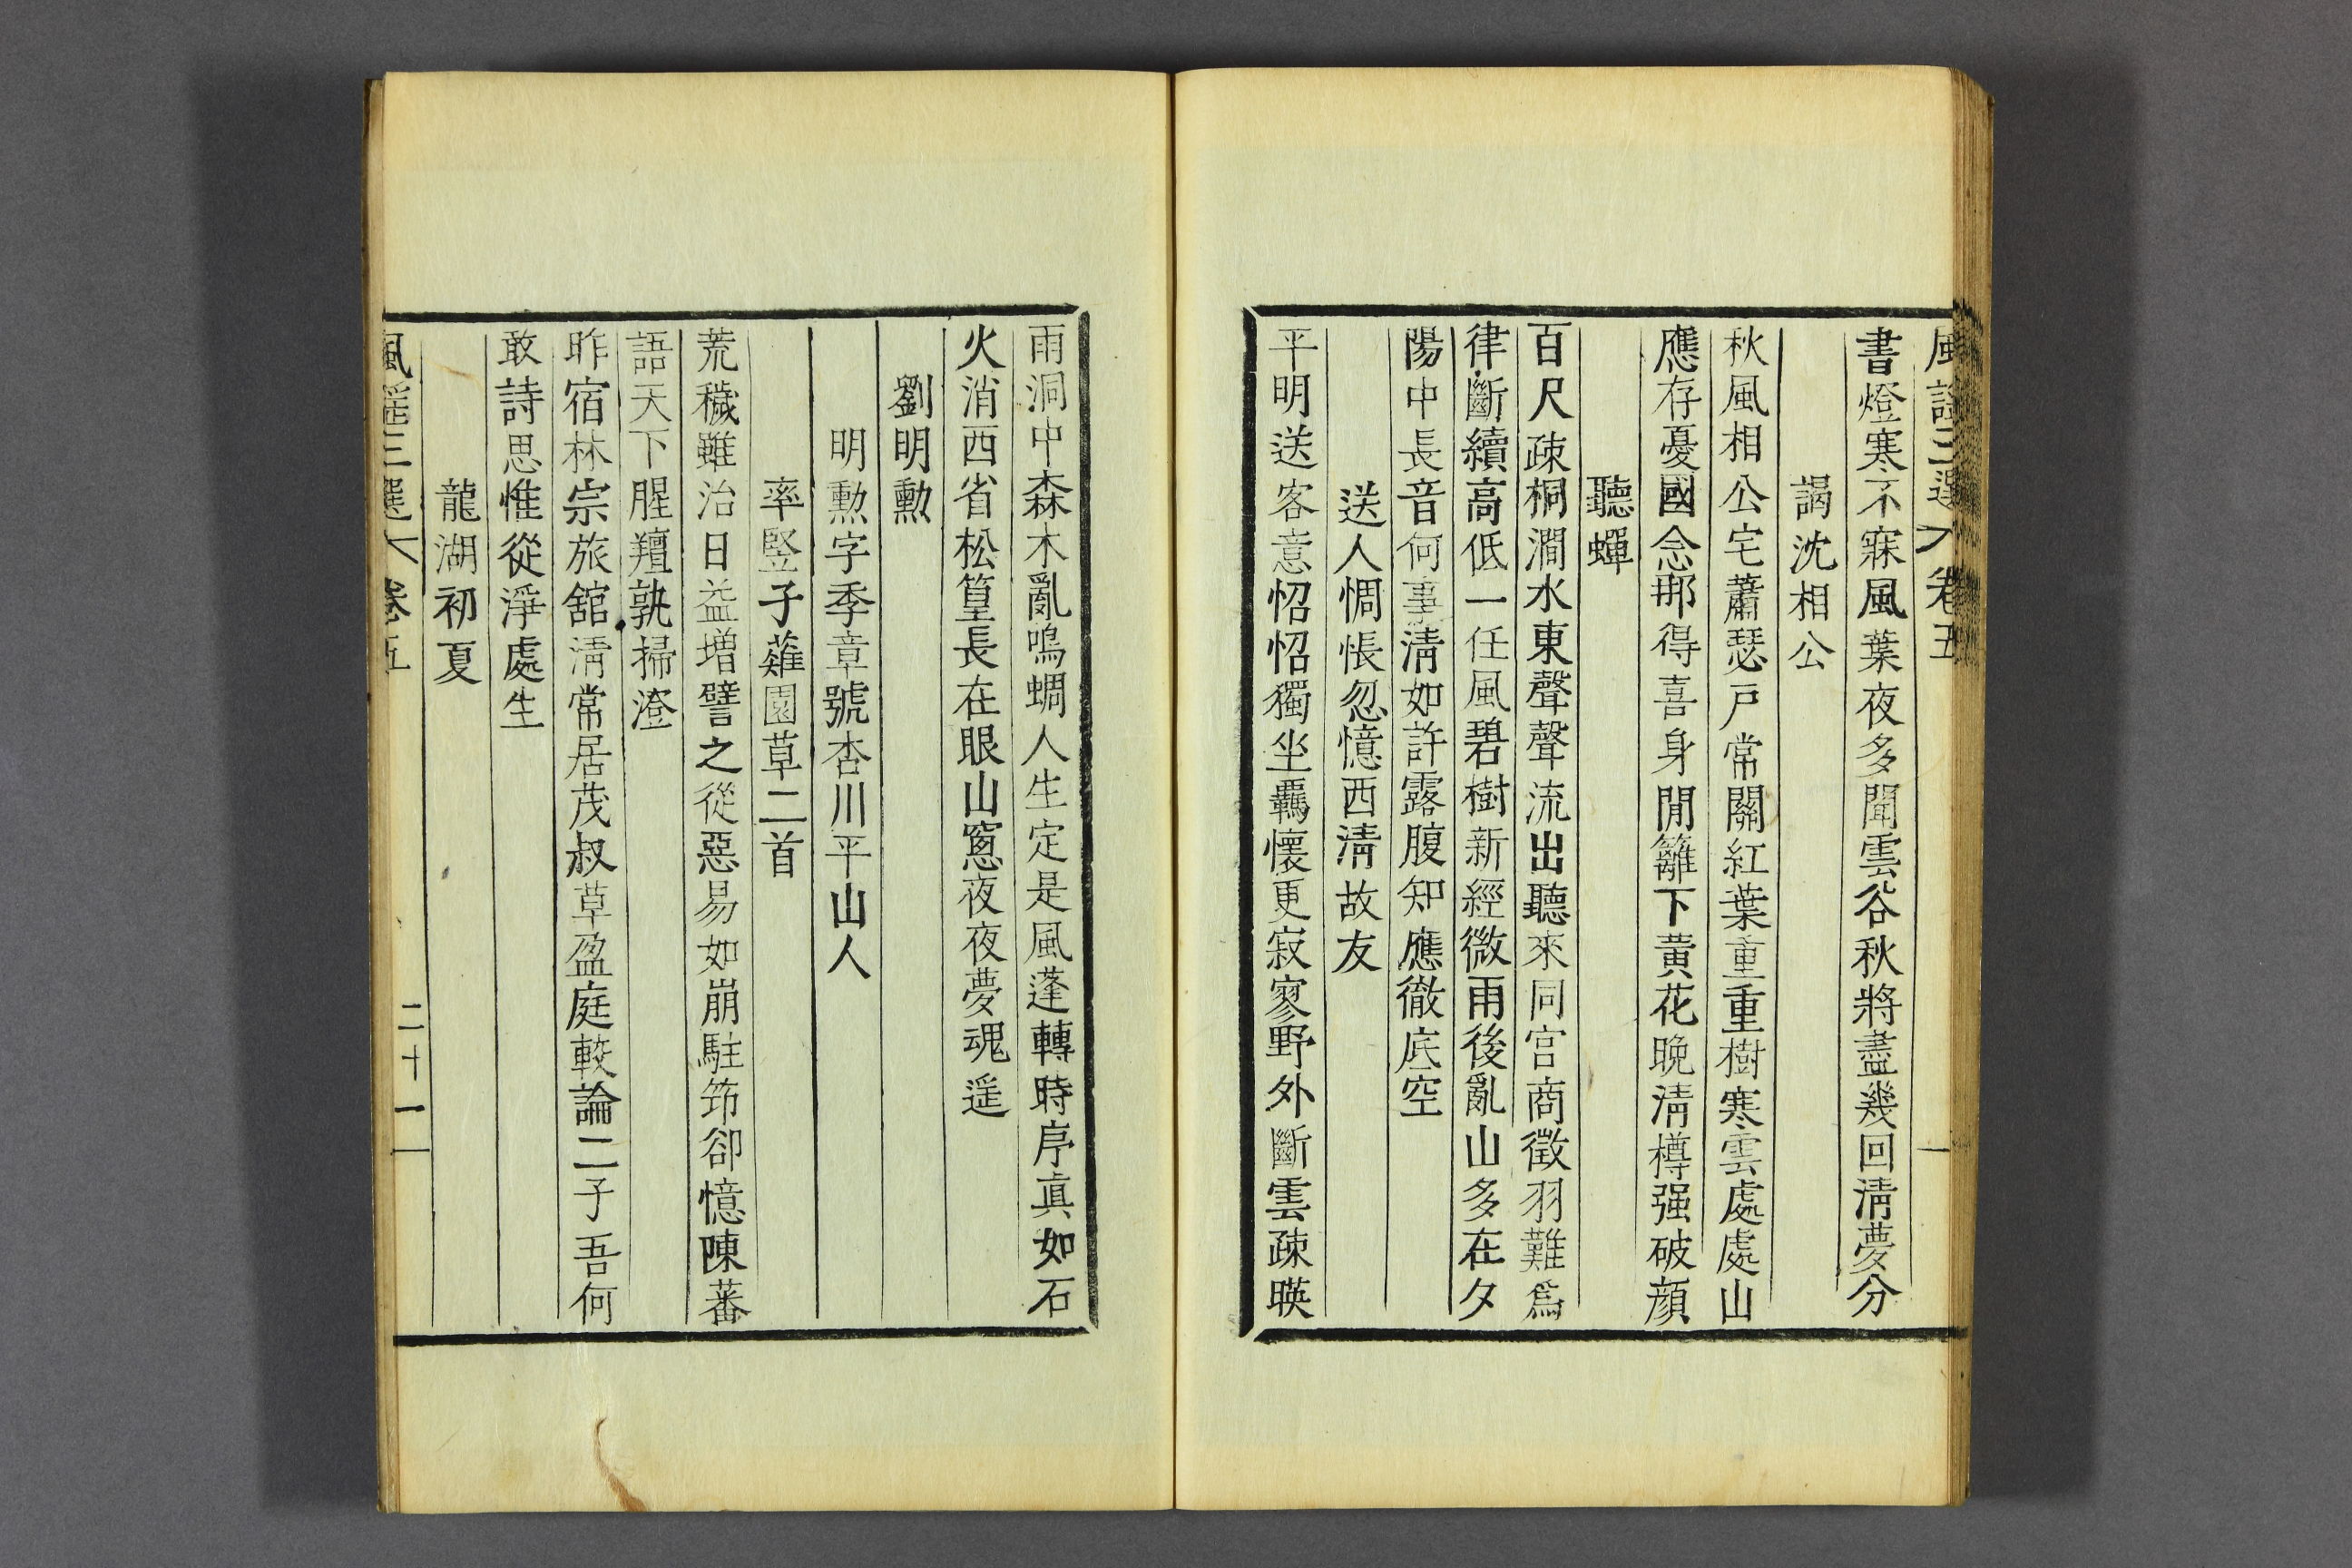 風謠三選 卷五
書燈寒不寐風葉夜多聞雲谷秋將盡幾回淸夢分
謁沈相公
秋風相公宅蕭瑟戶常關紅葉重重樹寒雲處處山
應存憂國念那得喜身閒籬下黃花晚淸樽强破顔
聽蟬
百尺疎桐澗水東聲聲流出聽來同宮商徵羽難爲
律斷續高低一任風碧樹新經微雨後亂山多在夕
陽中長音何事淸如許露腹知應徹底空
送人惆悵忽憶西淸故友
平明送客意怊怊獨坐羈懷更寂寥野外斷雲疎暎
雨洞中森木亂鳴蜩人生定是風蓬轉時序眞如石
火消西省松篁長在眼山窻夜夜夢魂遥
劉明勲
明勲字季章號杏川平山人
率竪子薙園草二首
荒穢雖治日益增譬之從惡易如崩駐筇卻憶陳蕃
語天下腥羶孰掃澄
昨宿林宗旅舘淸常居茂叔草盈庭較論二子吾何
敢詩思惟從淨處生
龍湖初夏
風謠三選 卷五 二十一